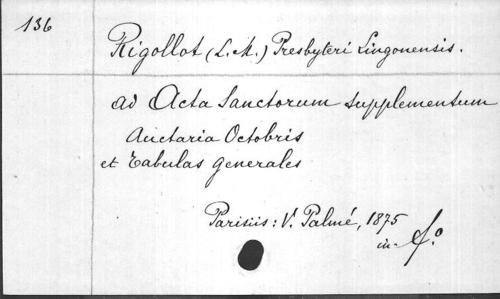 136
Rigollot (L.M.) Presbyteri Lingonensis.
ad Acta Sanctorum supplementum
Auctaria Octobris
et Tabulas generales
Parisiis: V. Palmé, 1875
in-fo.